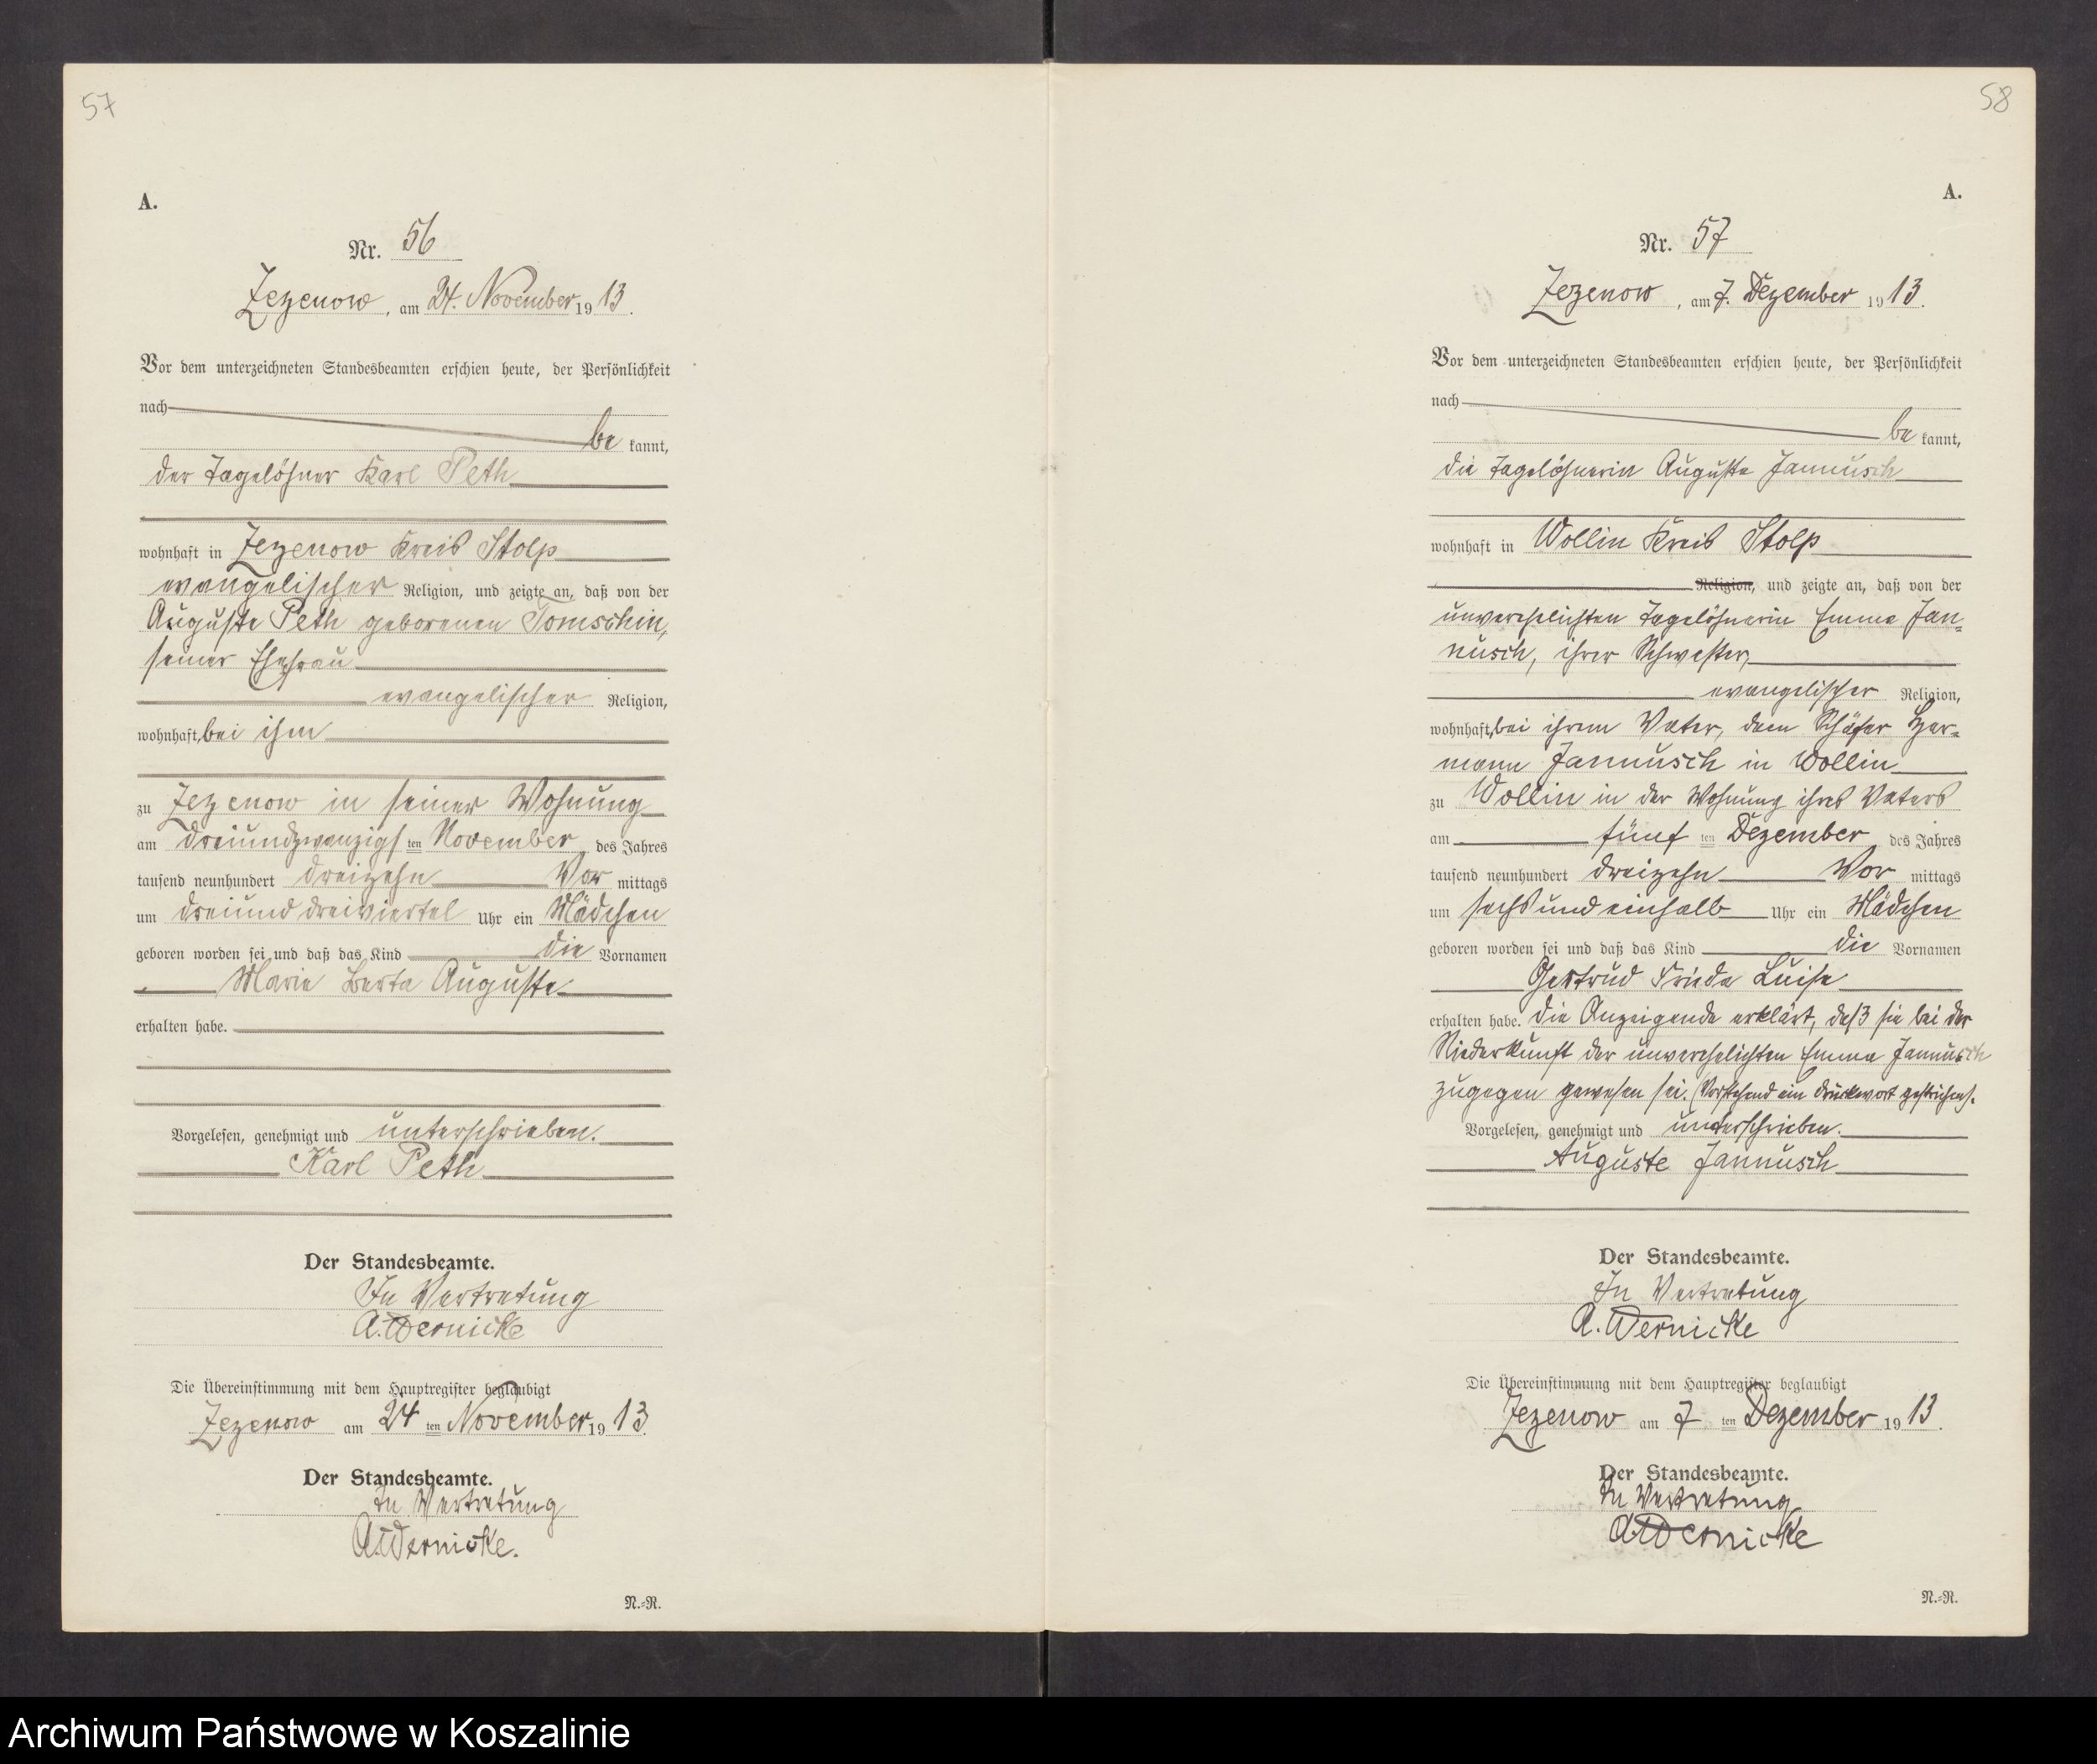 57
A.
Nr. 56
Zezenow, am 24. November 1913.
Vor dem unterzeichneten Standesbeamten erschien heute, der Persönlichkeit
nach
be kannt,
der Tagelöhner Karl Peth
wohnhaft in Zezenow Kreis Stolp
evangelischer Religion, und zeigte an, daß von der
Auguste Peth geborenen Tomschin,
seiner Ehefrau
evangelischer Religion,
wohnhaft, bei ihm
zu Zezenow in seiner Wohnung
am dreiundzwanzigsten November des Jahres
tausend neunhundert dreizehn Vor mittags
um drei und dreiviertel Uhr ein Mädchen
geboren worden sei und daß das Kind die Vornamen
Marie Berta Auguste
erhalten habe.
Vorgelesen, genehmigt und unterschrieben.
Karl Peth
Der Standesbeamte.
In Vertretung
A. Wernicke
Die Übereinstimmung mit dem Hauptregister beglaubigt
Zezenow am 24 ten November 1913.
Der Standesbeamte.
In Vertretung
A. Wernicke.
N.=R.
58
A.
Nr. 57
Zezenow, am 7. Dezember 1913.
Vor dem unterzeichneten Standesbeamten erschien heute, der Persönlichkeit
nach
be kannt,
die Tagelöhnerin Auguste Jannusch
wohnhaft in Wollin Kreis Stolp
Religion, und zeigte an, daß von der
unverehelichten Tagelöhnerin Emma Jan=
nusch, ihrer Schwester,
evangelischer Religion,
wohnhaft, bei ihrem Vater, dem Schäfer Her=
mann Jannusch in Wollin
zu Wollin in der Wohnung ihres Vaters
am fünf ten Dezember des Jahres
tausend neunhundert dreizehn Vor mittags
um sechs und einhalb Uhr ein Mädchen
geboren worden sei und daß das Kind die Vornamen
Gertrud Frieda Luise
erhalten habe. Die Anzeigende erklärt, daß sie bei der
Niederkunft der unverehelichten Emma Jannusch
zugegen gewesen sei. (Vorstehend ein Druckwort gestrichen).
Vorgelesen, genehmigt und unterschrieben.
Auguste Jannusch
Der Standesbeamte.
In Vertretung
A. Wernicke
Die Übereinstimmung mit dem Hauptregister beglaubigt
Zezenow am 7 ten Dezember 1913.
Der Standesbeamte.
In Vertretung
A. Wernicke
N.=R.
Archiwum Państwowe w Koszalinie